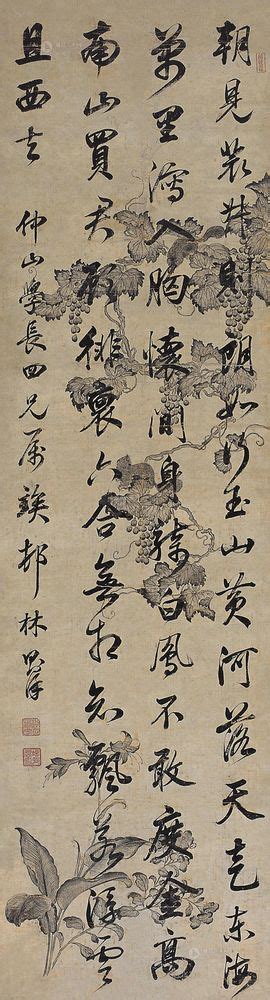 朝見裴叔則朗如行玉山黃河落天走东海
萬里瀉入胸懷間身騎白鳳不敢度金高
南山買君顧徘徊六合無相知飄若浮雲
且西去 仲山學長四兄屬 竢邨林則徐